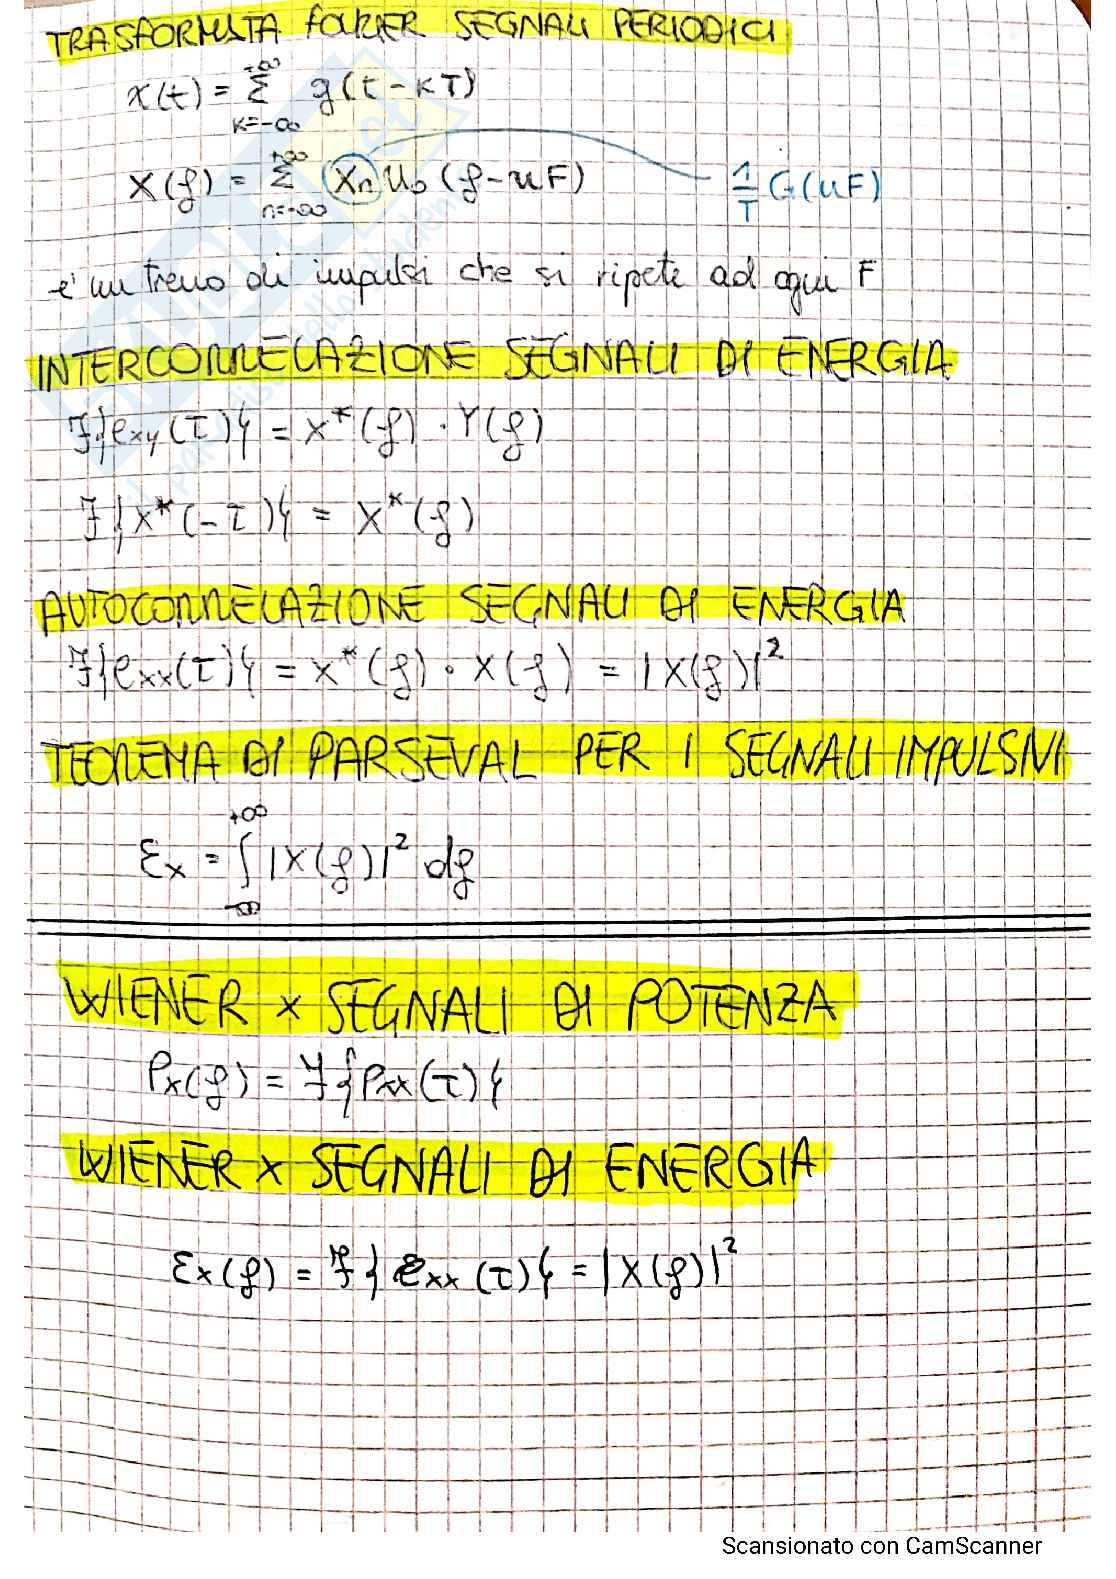 TRASFORMATA FOURIER SEGNALI PERIODICI
x(t) = Σ_{k=-∞}^{+∞} g(t-kT)
X(f) = Σ_{n=-∞}^{+∞} (Xn) u₀ (f-nF) 1/T G(nF)
e' un treno di impulsi che si ripete ad ogni F
INTERCORRELAZIONE SEGNALI DI ENERGIA
F{e_xy(τ)} = X*(f) · Y(f)
F{x*(-τ)} = X*(f)
AUTOCORRELAZIONE SEGNALI DI ENERGIA
F{e_xx(τ)} = X*(f) · X(f) = |X(f)|²
TEOREMA DI PARSEVAL PER I SEGNALI IMPULSIVI
Ɛx = ∫_{-∞}^{+∞} |X(f)|² df
WIENER x SEGNALI DI POTENZA
Px(f) = F{Pxx(τ)}
WIENER x SEGNALI DI ENERGIA
Ɛx(f) = F{e_xx(τ)} = |X(f)|²
Scansionato con CamScanner